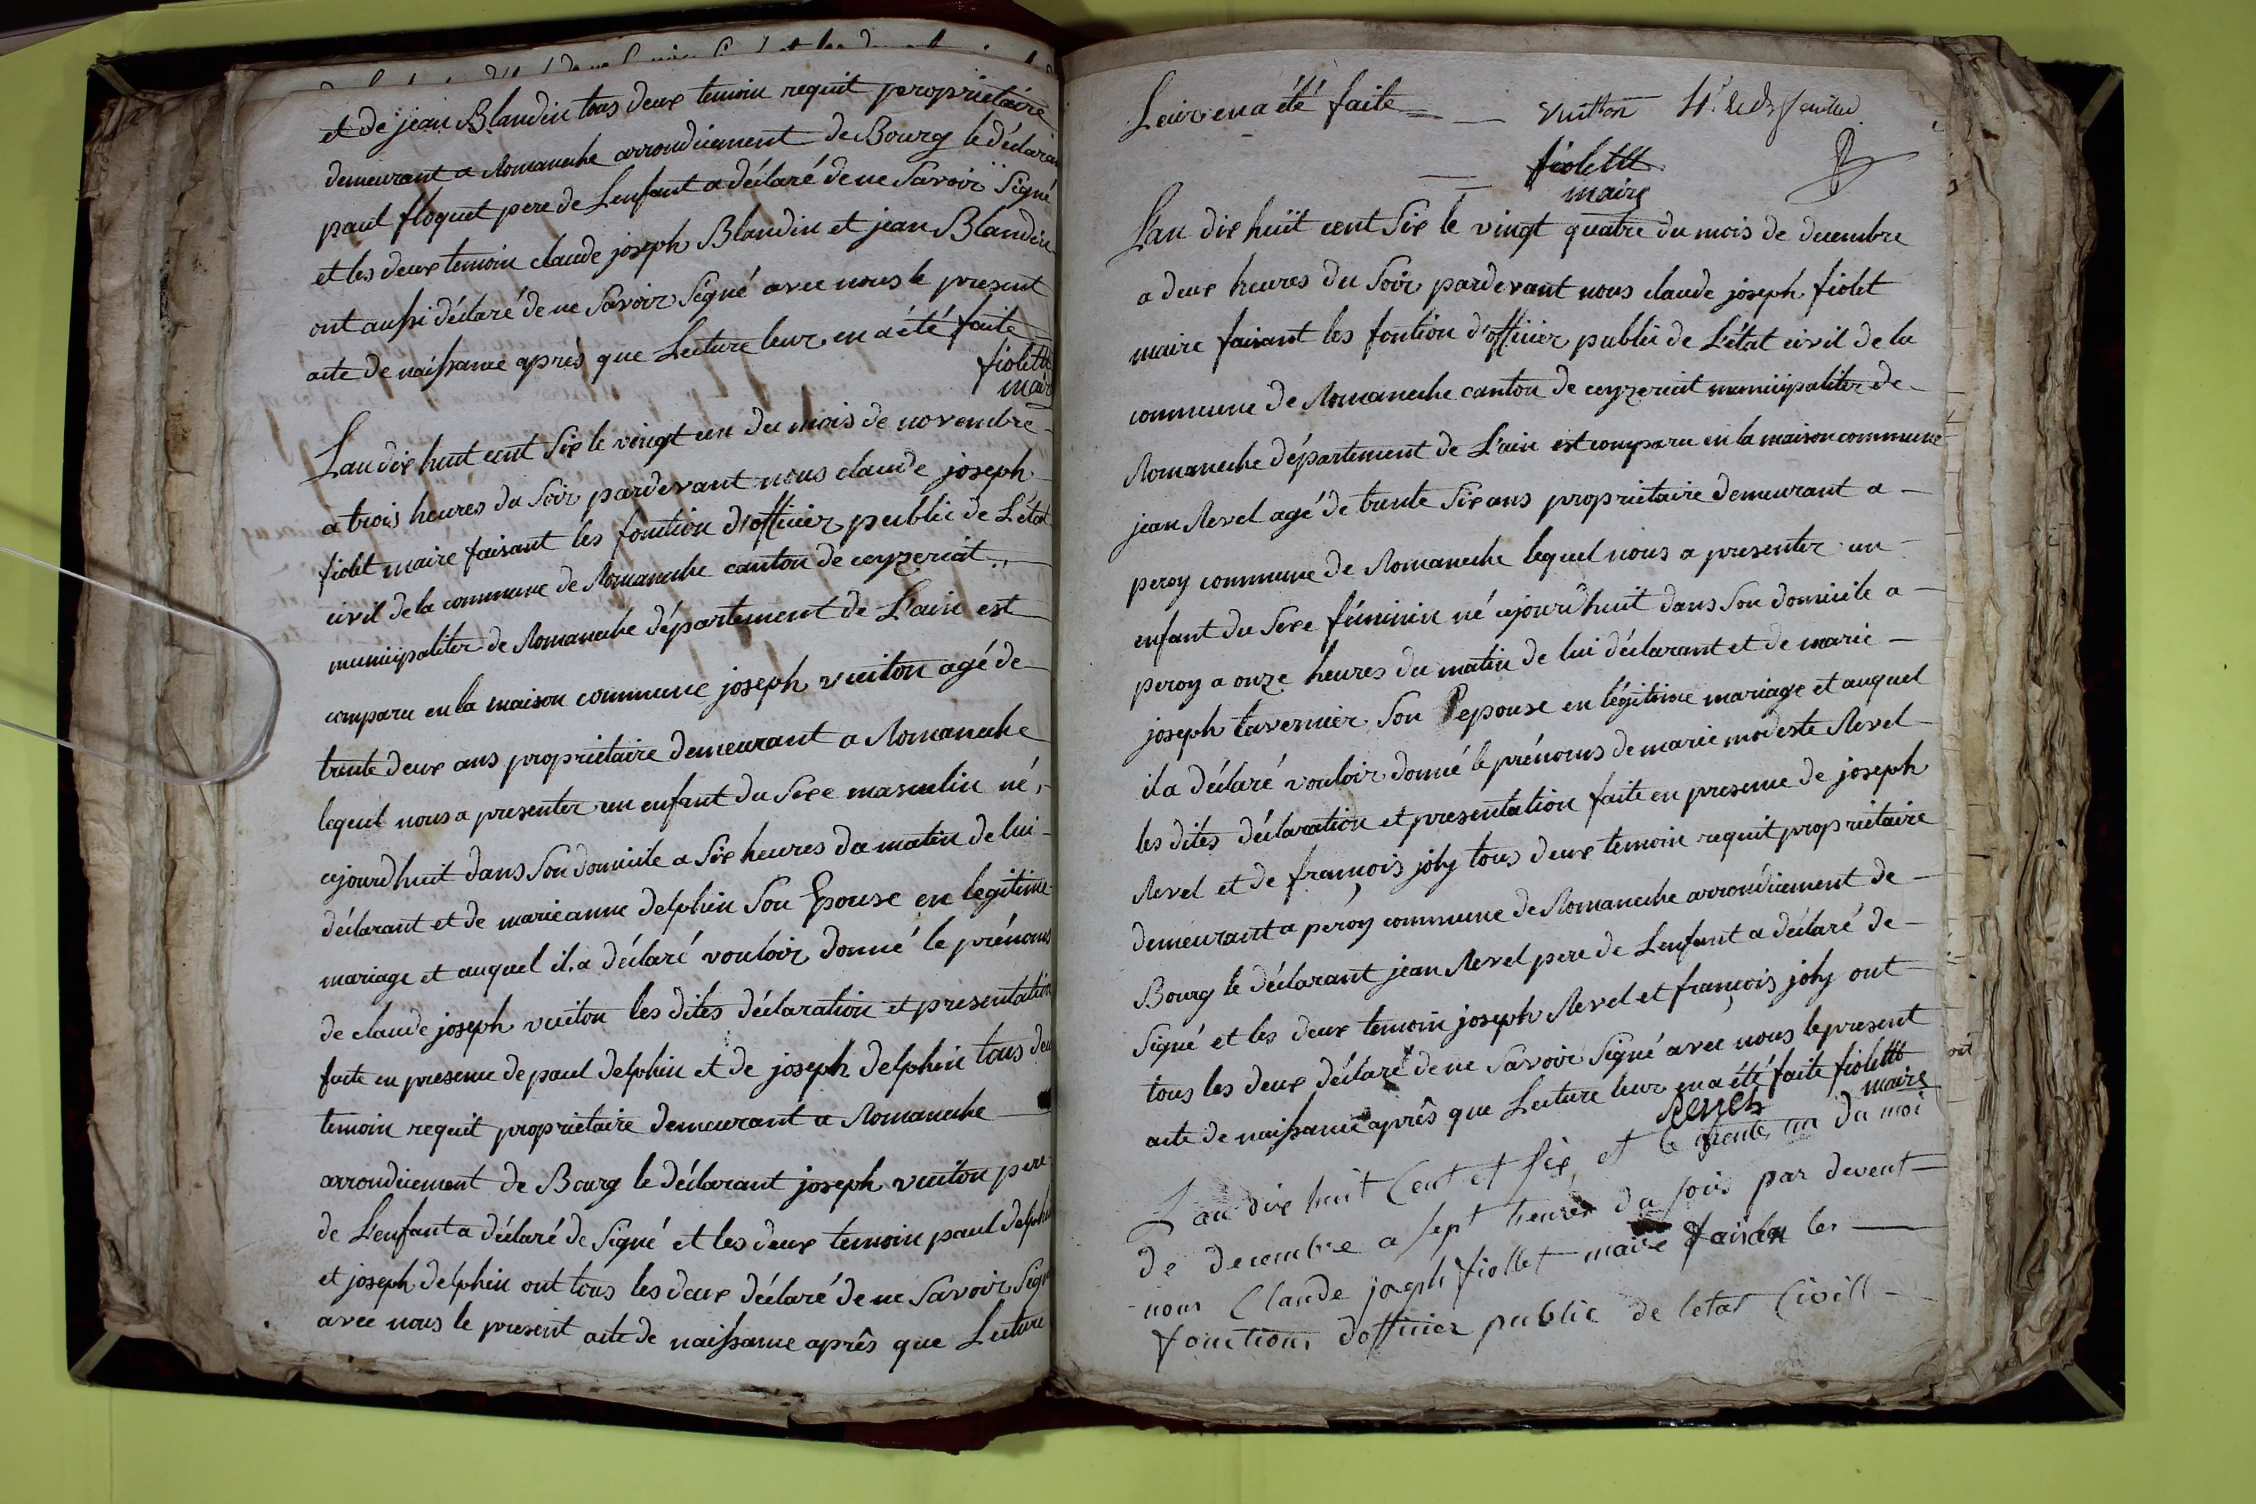 et de jean Blandin tous deux temoin requit proprietaire
demeurant a Romaneche arrondicement de Bourg le déclarant
paul floquet pere de Lenfant a déclaré de ne Savoir Signé
et les deux temoin claude joseph Blandin et jean Blandin
ont aussi déclaré de ne Savoir Signé avec nous le present
acte de naissance aprés que Lecture leur en a été faite
fiolett
maire
Lan dix huit cent Six le vingt un du mois de novembre
a trois heures du Soir pardevant nous claude joseph
fiolet maire faisant les fontion d'officier public de L'état
civil de la commune de Romaneche canton de ceyzeriat
municipaliter de Romaneche département de L'ain est
comparu en la maison commune joseph vuiton agé de
trente deux ans proprietaire demeurant a Romaneche
lequel nous a presenter un enfant du Sexe masculin né
cejourdhuit dans Son domicile a Six heures du matin de lui
déclarant et de marie anne delphin Son Epouse en legitime
mariage et auquel il a déclaré vouloir donné le prénoms
de claude joseph vuiton les dites déclaration et presentation
faite en presence de paul delphin et de joseph delphin tous deux
temoin requit proprietaire demeurant a Romaneche
arrondicement de Bourg le déclarant joseph vuiton pere
de L'enfant a déclaré de Signé et les deux temoin paul delphin
et joseph delphin ont tous les deux déclaré de ne Savoir Signé
avec nous le present acte de naissance aprês que Lecture
Leur en a été faite
vuitton
fiolettt
maire
L'an dix huit cent Six le vingt quatre du mois de decembre
a deux heures du Soir pardevant nous claude joseph fiolet
maire faisant les fontion d'officier public de L'état civil de la
commune de Romaneche canton de ceyzeriat municipaliter de
Romaneche département de L'ain est comparu en la maison commune
jean Revel agé de trente Six ans proprietaire demeurant a
peroy commune de Romaneche lequel nous a presenter un
enfant du Sexe féminin né cejourdhuit dans Son domicile a
peroy a onze heures du matin de lui déclarant et de marie
joseph tavernier Son epouse en légitime mariage et auquel
il a déclaré vouloir donné le prénoms de marie modeste Revel
les dites déclaration et presentation faite en presence de joseph
Revel et de françois joly tous deux temoin requit proprietaire
demeurant a péroy commune de Romaneche arrondicement de
Bourg le déclarant jean Revel pere de Lenfant a déclaré de
Signé et les deux temoin joseph Revel et françois joly ont
tous les deux déclaré de ne Savoir Signé avec nous le present
acte de naissance aprês que Lecture leur en a été faite fiolettt
maire
Revel
L an dix huit Cent et Six, et le trente un du moi
de decembre a sept heures du soir par devent
nous Claude joseph fiollet maire faisan les
fonctions d'officier public de letat Civill